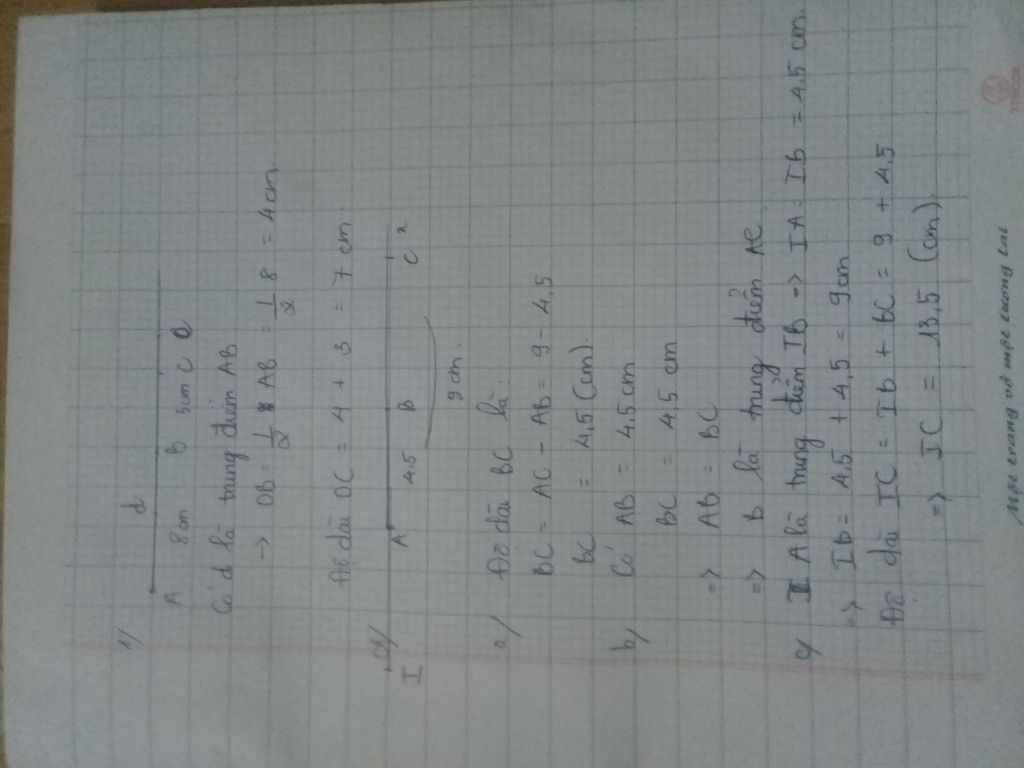 1/
d
A 8cm B 3cm C
Có d là trung điểm AB
-> DB = 1/2 AB = 1/2 8 = 4 cm
Độ dài DC = 4 + 3 = 7 cm.
2/
I A 4,5 B C x
9 cm.
a/ Độ dài BC là:
BC = AC - AB = 9 - 4,5
BC = 4,5 (cm).
b/ Có AB = 4,5 cm
BC = 4,5 cm
=> AB = BC
=> B là trung điểm AC.
c/ A là trung điểm IB => IA = Ib = 4,5 cm.
=> Ib = 4,5 + 4,5 = 9 cm
Độ dài IC = Ib + BC = 9 + 4,5
=> IC = 13,5 (cm).
Một trang vở một tương lai